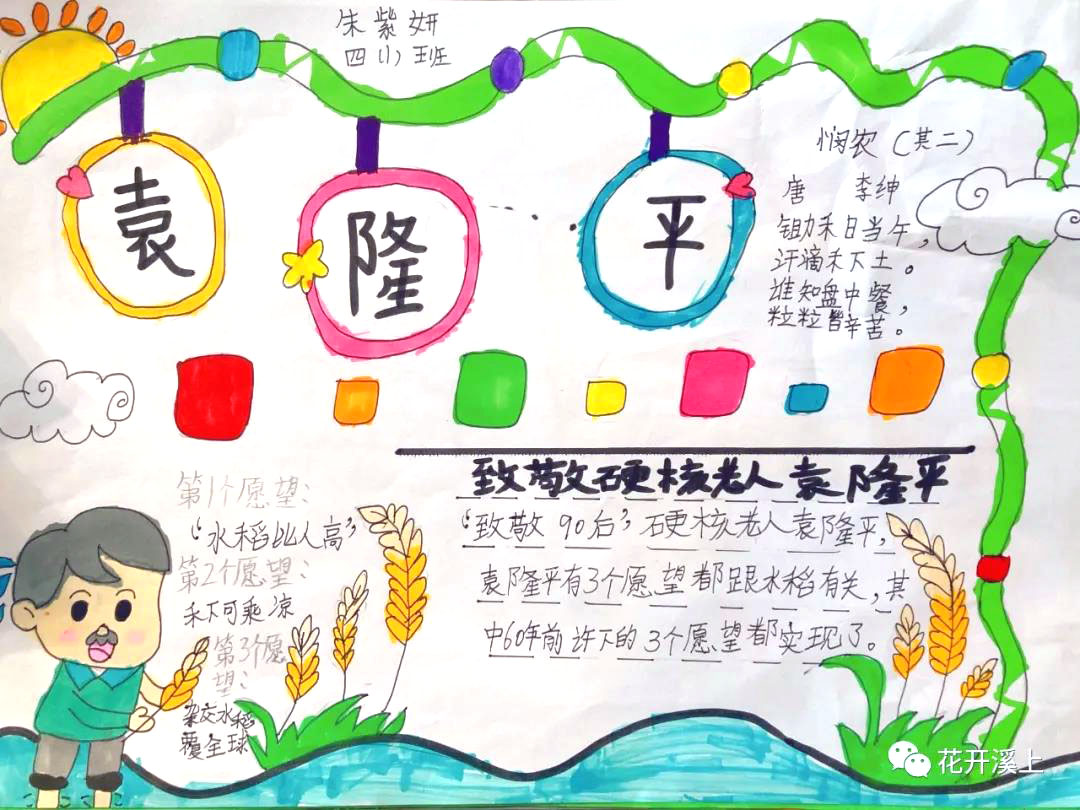 朱紫妍
四(1)班
袁
隆
平
悯农(其二)
唐 李绅
锄禾日当午，
汗滴禾下土。
谁知盘中餐，
粒粒皆辛苦。
致敬硬核老人袁隆平
“致敬90后”硬核老人袁隆平，
袁隆平有3个愿望都跟水稻有关，其
中60年前许下的3个愿望都实现了。
第1个愿望：
“水稻比人高”
第2个愿望：
禾下可乘凉
第3个愿
望：
杂交水稻
覆全球
花开溪上